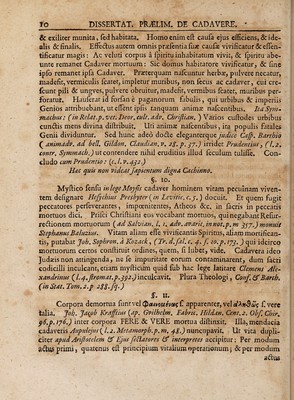 10 DISSERTAT. PRÆLIM. DE CADAVERE.
& exiliter munita, sed habitata. Homo enim est causa ejus efficiens, & ide-
alis & finalis. Effectus autem omnis præsentia suæ causæ vivificatur & essen-
tificatur magis: Ac velut corpus à spiritu inhabitatum vivit, & spiritu abe-
unte remanet Cadaver mortuum: Sic domus habitatore vivificatur, & sine
ipso remanet ipsa Cadaver. Præterquam nascuntur herbæ, pulvere necatur,
madefit, vermiculis scatet, impletur muribus, non secus ac cadaver, cui cre-
scunt pili & ungves, pulvere obruitur, madefit, vermibus scatet, muribus per-
foratur. Hauserat id forsan è paganorum fabulis, qui urbibus & imperiis
Genios attribuebant, ut essent ipsis tanquam animæ nascentibus. Ita Sym-
machus: (in Relat. p. vet. Deor. cult. adv. Christian.) Varios custodes urbibus
cunctis mens divina distribuit. Ut animæ nascentibus, ita populis fatales
Genii dividuntur. Sed hunc adeò docte eleganterque judice Casp. Barthio
(animadv. ad bell. Gildon. Claudian. v. 28. p. 37.) irridet Prudentius, (l. 2.
contr. Symmach.) ut contendere nihil eruditius illud seculum tulisse. Conclu-
do cum Prudentio: (c. l. v. 432.)
Hac quis non videat sapientum digna Cachinno.
§. 10.
Mystico sensu in lege Moysis cadaver hominem vitam pecuinam viven-
tem designare Hesychius Presbyter (in Levitic. c. 5.) docuit. Et quem fugit
peccatores perseverantes, impœnitentes, Atheos &c. in sacris in peccatis
mortuos dici. Prisci Christiani eos vocabant mortuos, qui negabant Resur-
rectionem mortuorum (ad Salvian. l. 1. adv. avaric. in not. p. m. 50.) monuit
Stephanus Baluzius. Vitam aliam esse vivificantis Spiritus, aliam mortificantis,
putabat Joh. Sophron. à Kozack, (Tr. d. sal. c. 4. f. 10. p. 173.) qui idcirco
mortuorum certos constituit ordines, quem, si lubet, vide. Cadavera ideo
Judæis non attingenda, ne se impuritate eorum contaminarent, dum sacri
codicilli inculcant, etiam mysticum quid sub hac lege latitare Clemens Ale-
xandrinus (l. 4. stromat. p. 392.) inculcavit. Plura Theologi, Conf. & Barth.
(in Stat. Tom. 2. p. 288. sq.)
§. 11.
Corpora demortua sunt vel Φαινομένως s. apparenter, vel ἀληθῶς s. vere
talia. Joh. Jacob. Krafftius (ap. Gvilhelm. Fabric. Hildan. Cent. 2. Obs. Chir.
96. p. 176.) inter corpora FERE & VERE mortua distinxit. Illa, mendacia
cadaveris Appulejus (l. 2. Metamorph. p. m. 48.) nuncupavit. Ut vita dupli-
citer apud Aristotelem & Ejus sectatores & interpretes accipitur: Per modum
actus primi, quatenus est principium vitalium operationum; & per modum
actus